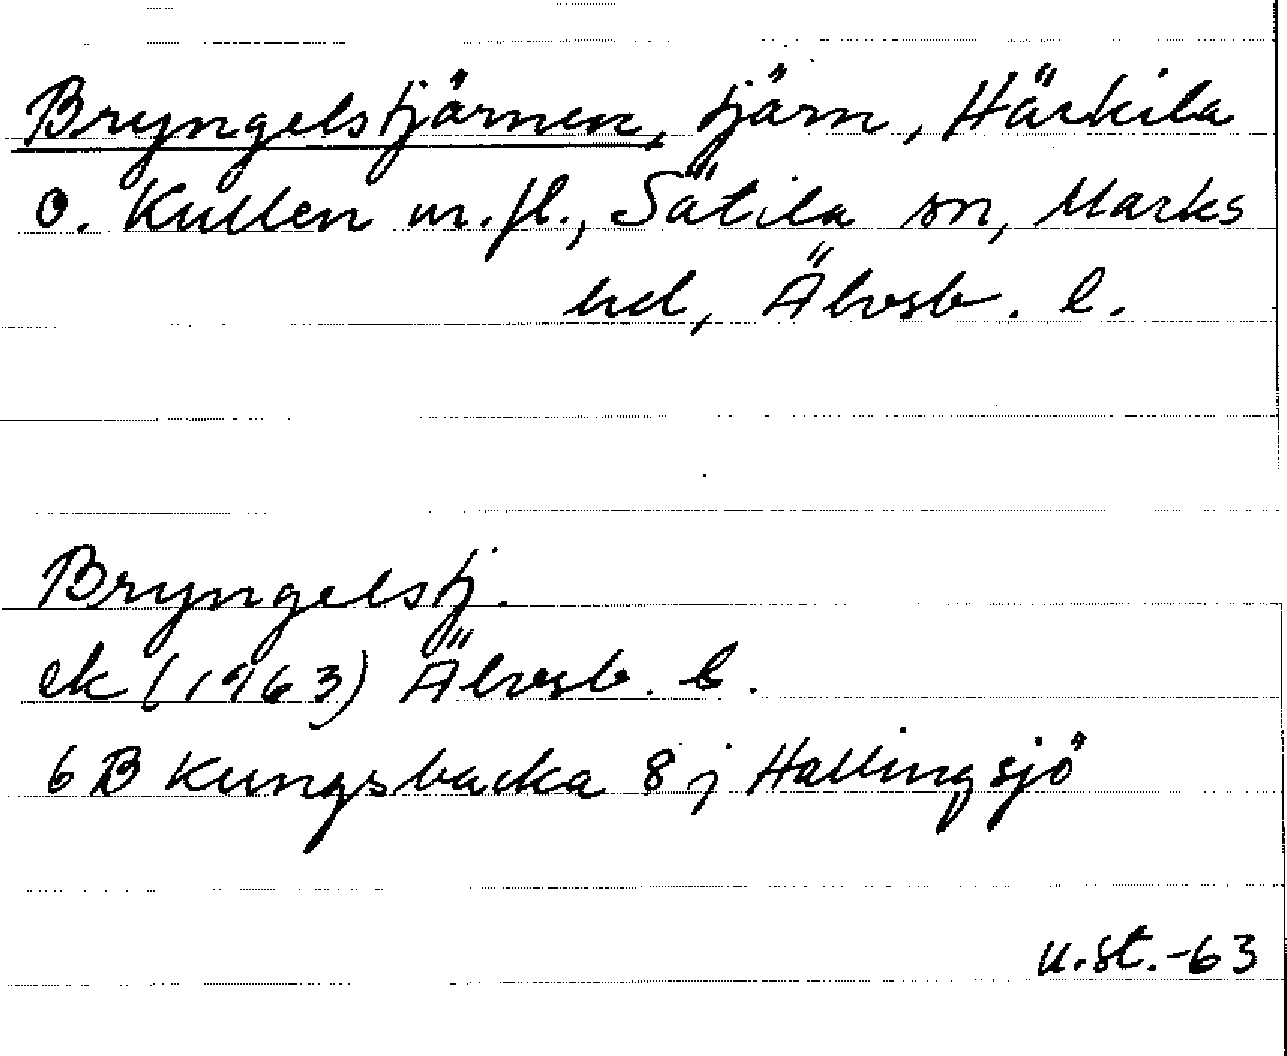 Bryngelstjärnen, tjärn, Härkila
o. Kullen m.fl., Sätila sn, Marks
hd, Älvsb. l.
Bryngelstj.
ek (1963) Älvsb. l.
6 B Kungsbacka 8 j Hällingsjö
u.st.-63